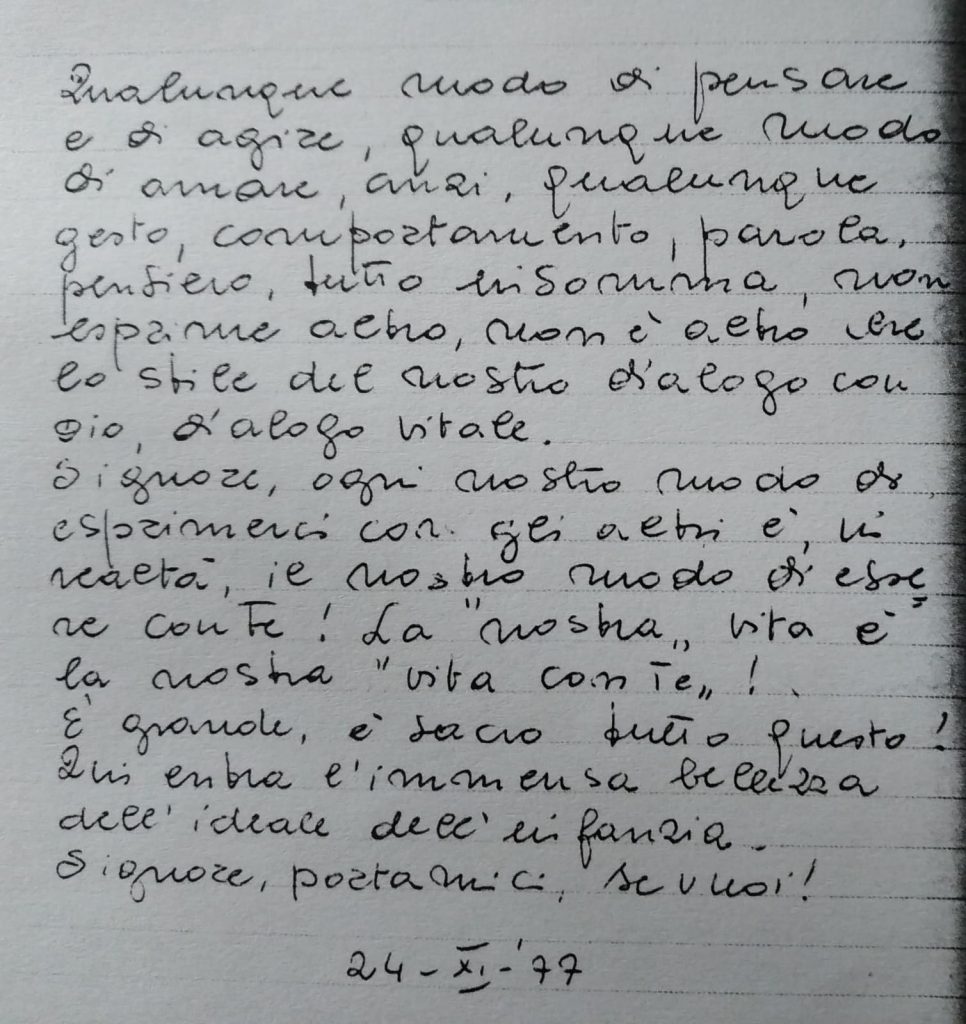 Qualunque modo di pensare
e di agire, qualunque modo
di amare, anzi, qualunque
gesto, comportamento, parola,
pensiero, tutto insomma, non
esprime altro, non è altro che
lo stile del nostro dialogo con
Dio, dialogo vitale.
Signore, ogni nostro modo di
esprimerci con gli altri è, in
realtà, il nostro modo di esse
re con Te! La "nostra„ vita è
la nostra "vita con Te„!
È grande, è sacro tutto questo!
Qui entra l'immensa bellezza
dell'ideale dell'infanzia.
Signore, portamici, se vuoi!
24-XI-'77